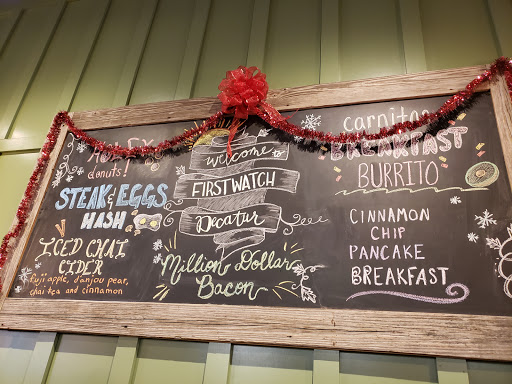 donuts!
STEAK & EGGS
HASH
ICED CHAI
CIDER
fuji apple, d'anjou pear,
chai tea and cinnamon
Welcome to
FIRST WATCH
Decatur
Million Dollar
Bacon
carnitas
BREAKFAST
BURRITO
CINNAMON
CHIP
PANCAKE
BREAKFAST